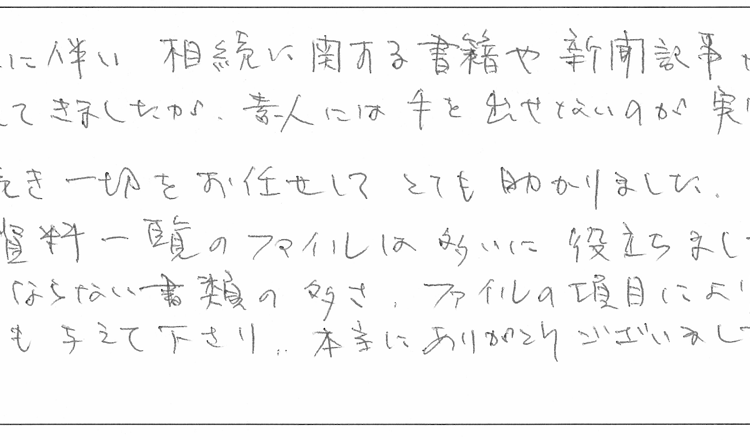 に伴い 相続に関する書籍や新聞記事
てきましたが、素人には手を出せないのが実
き一切をお任せしてとても助かりました。
資料一覧のファイルは多いに役立ちまし
ならない書類の多さ、ファイルの項目により
も与えて下さり、本当にありがとうございまし